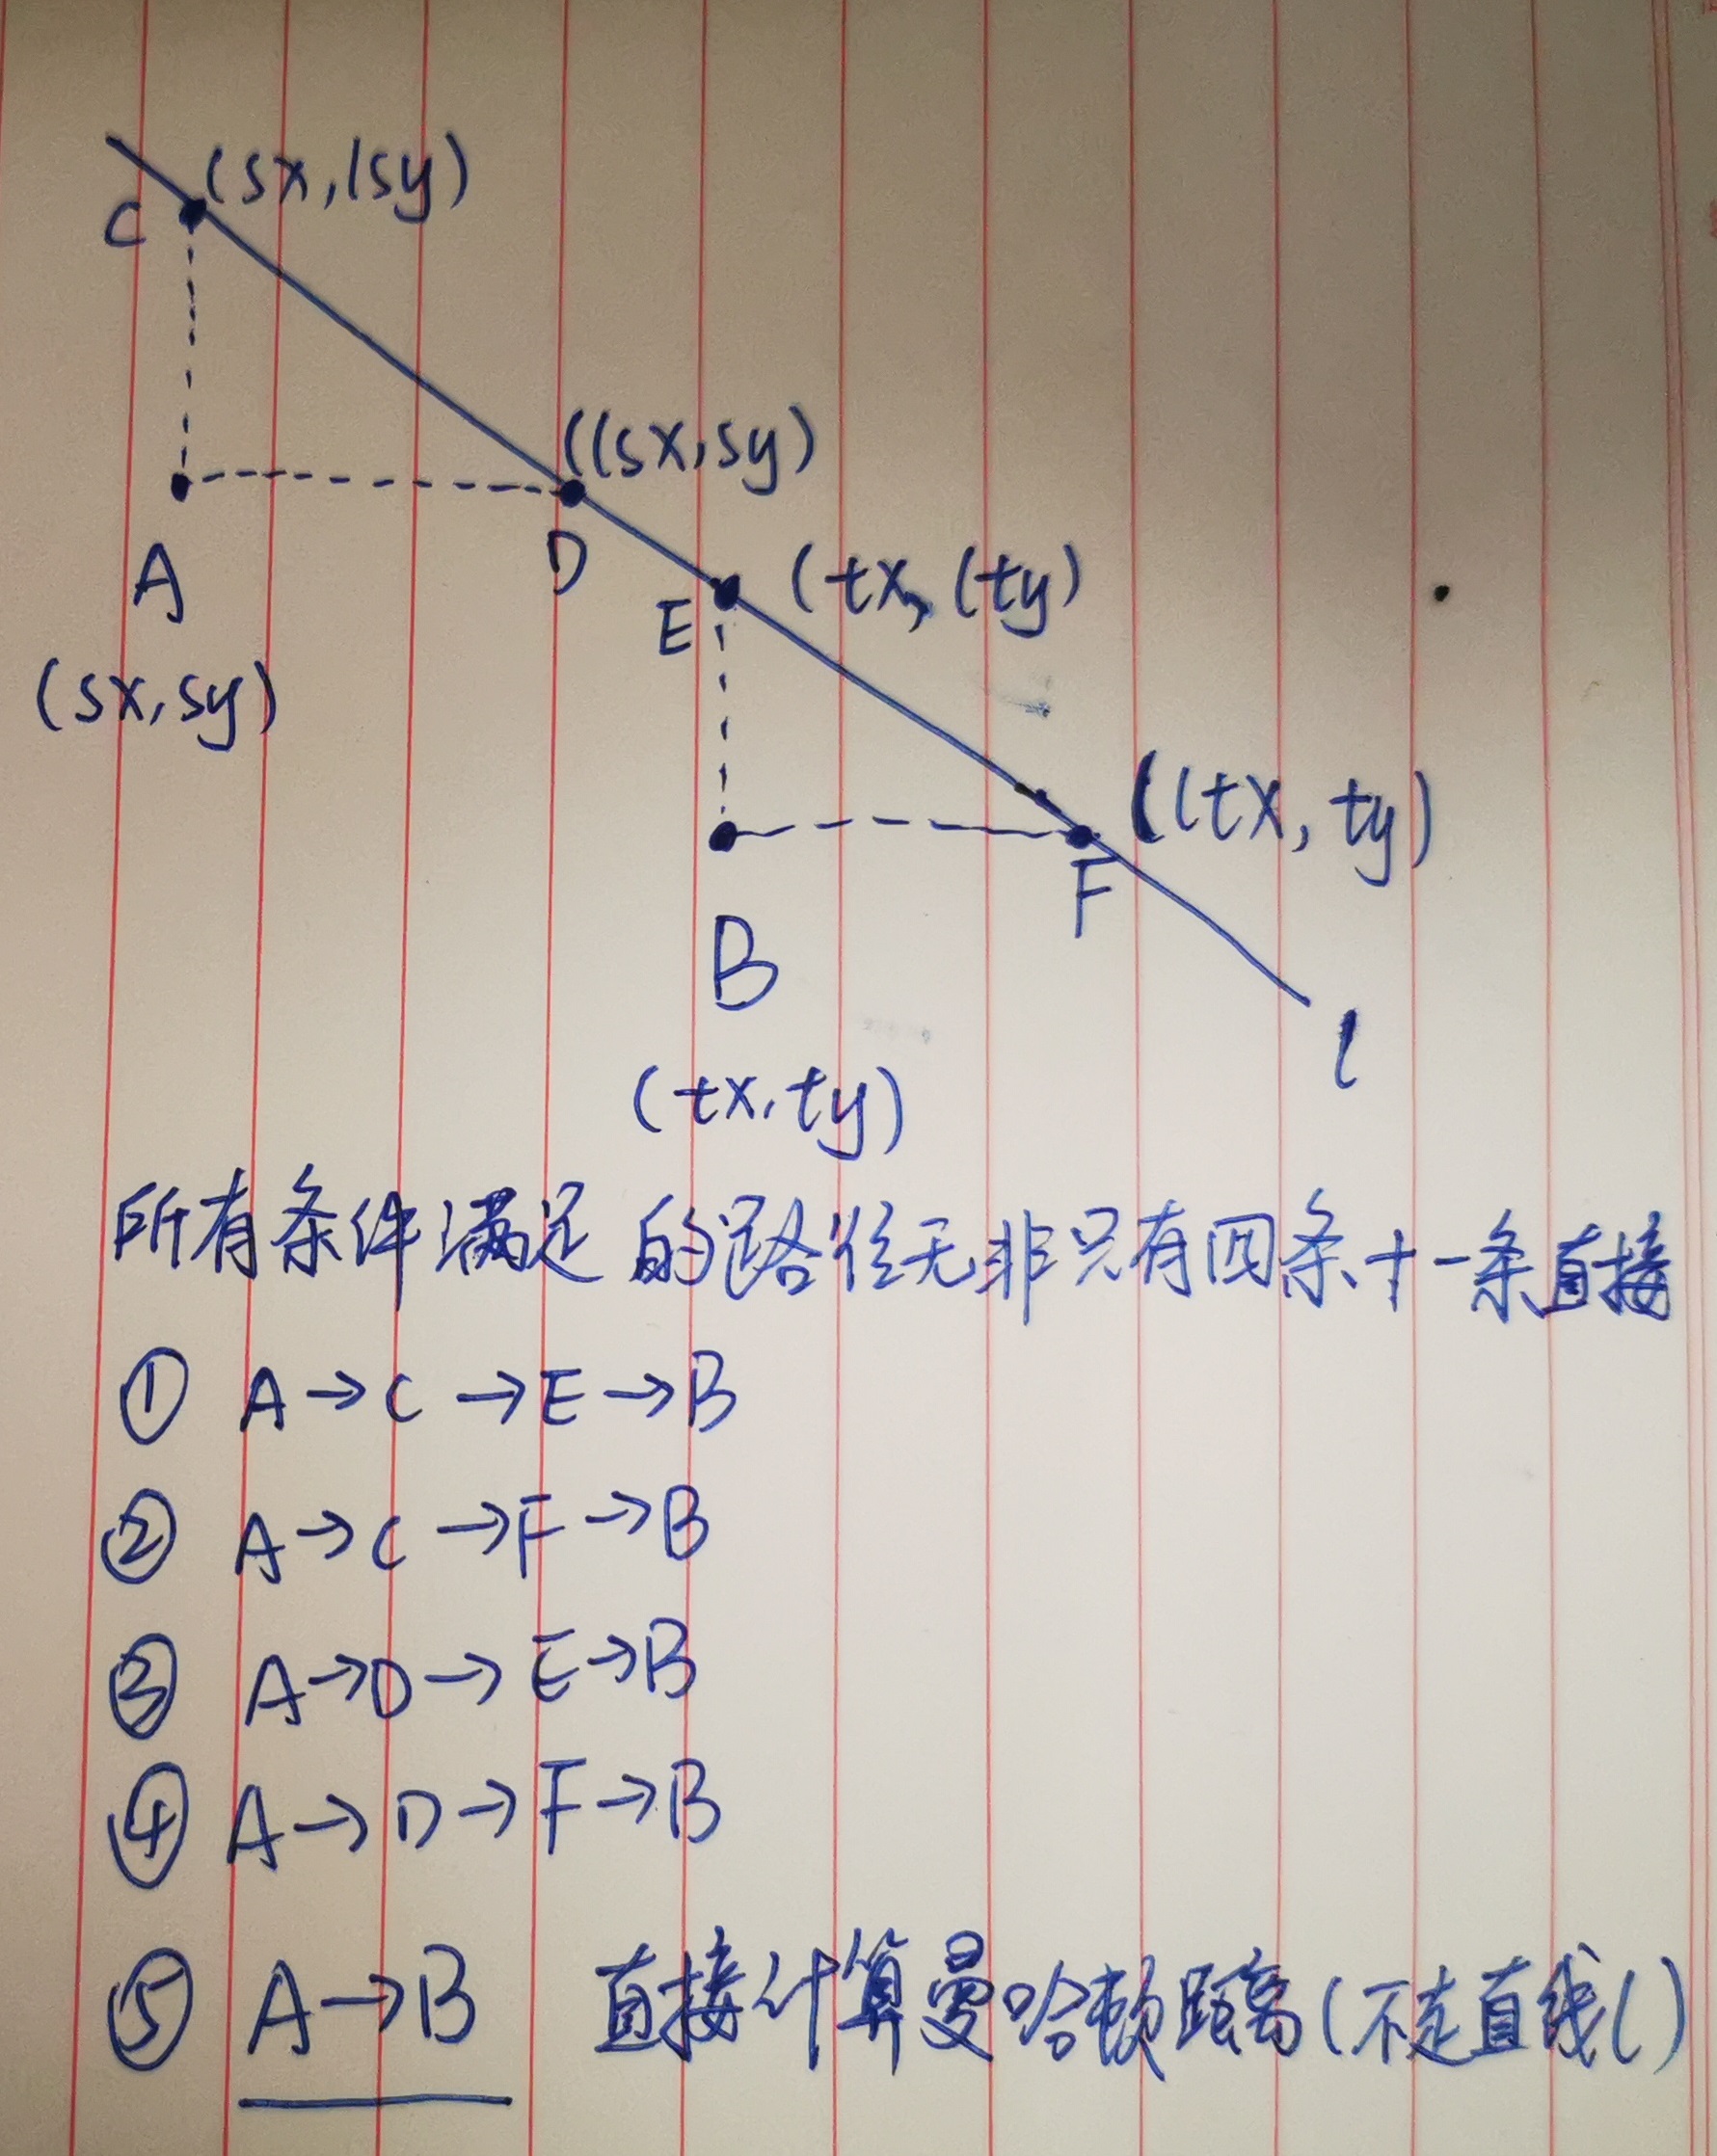 (sx,lsy)
C
((sx,sy)
D
A
(tx,(ty)
E
(sx,sy)
((tx,ty)
F
B
l
(tx,ty)
所有条件满足的路径无非只有四条+一条直接
① A→C→E→B
② A→C→F→B
③ A→D→E→B
④ A→D→F→B
⑤ A→B 直接计算曼哈顿距离(不走直线l)